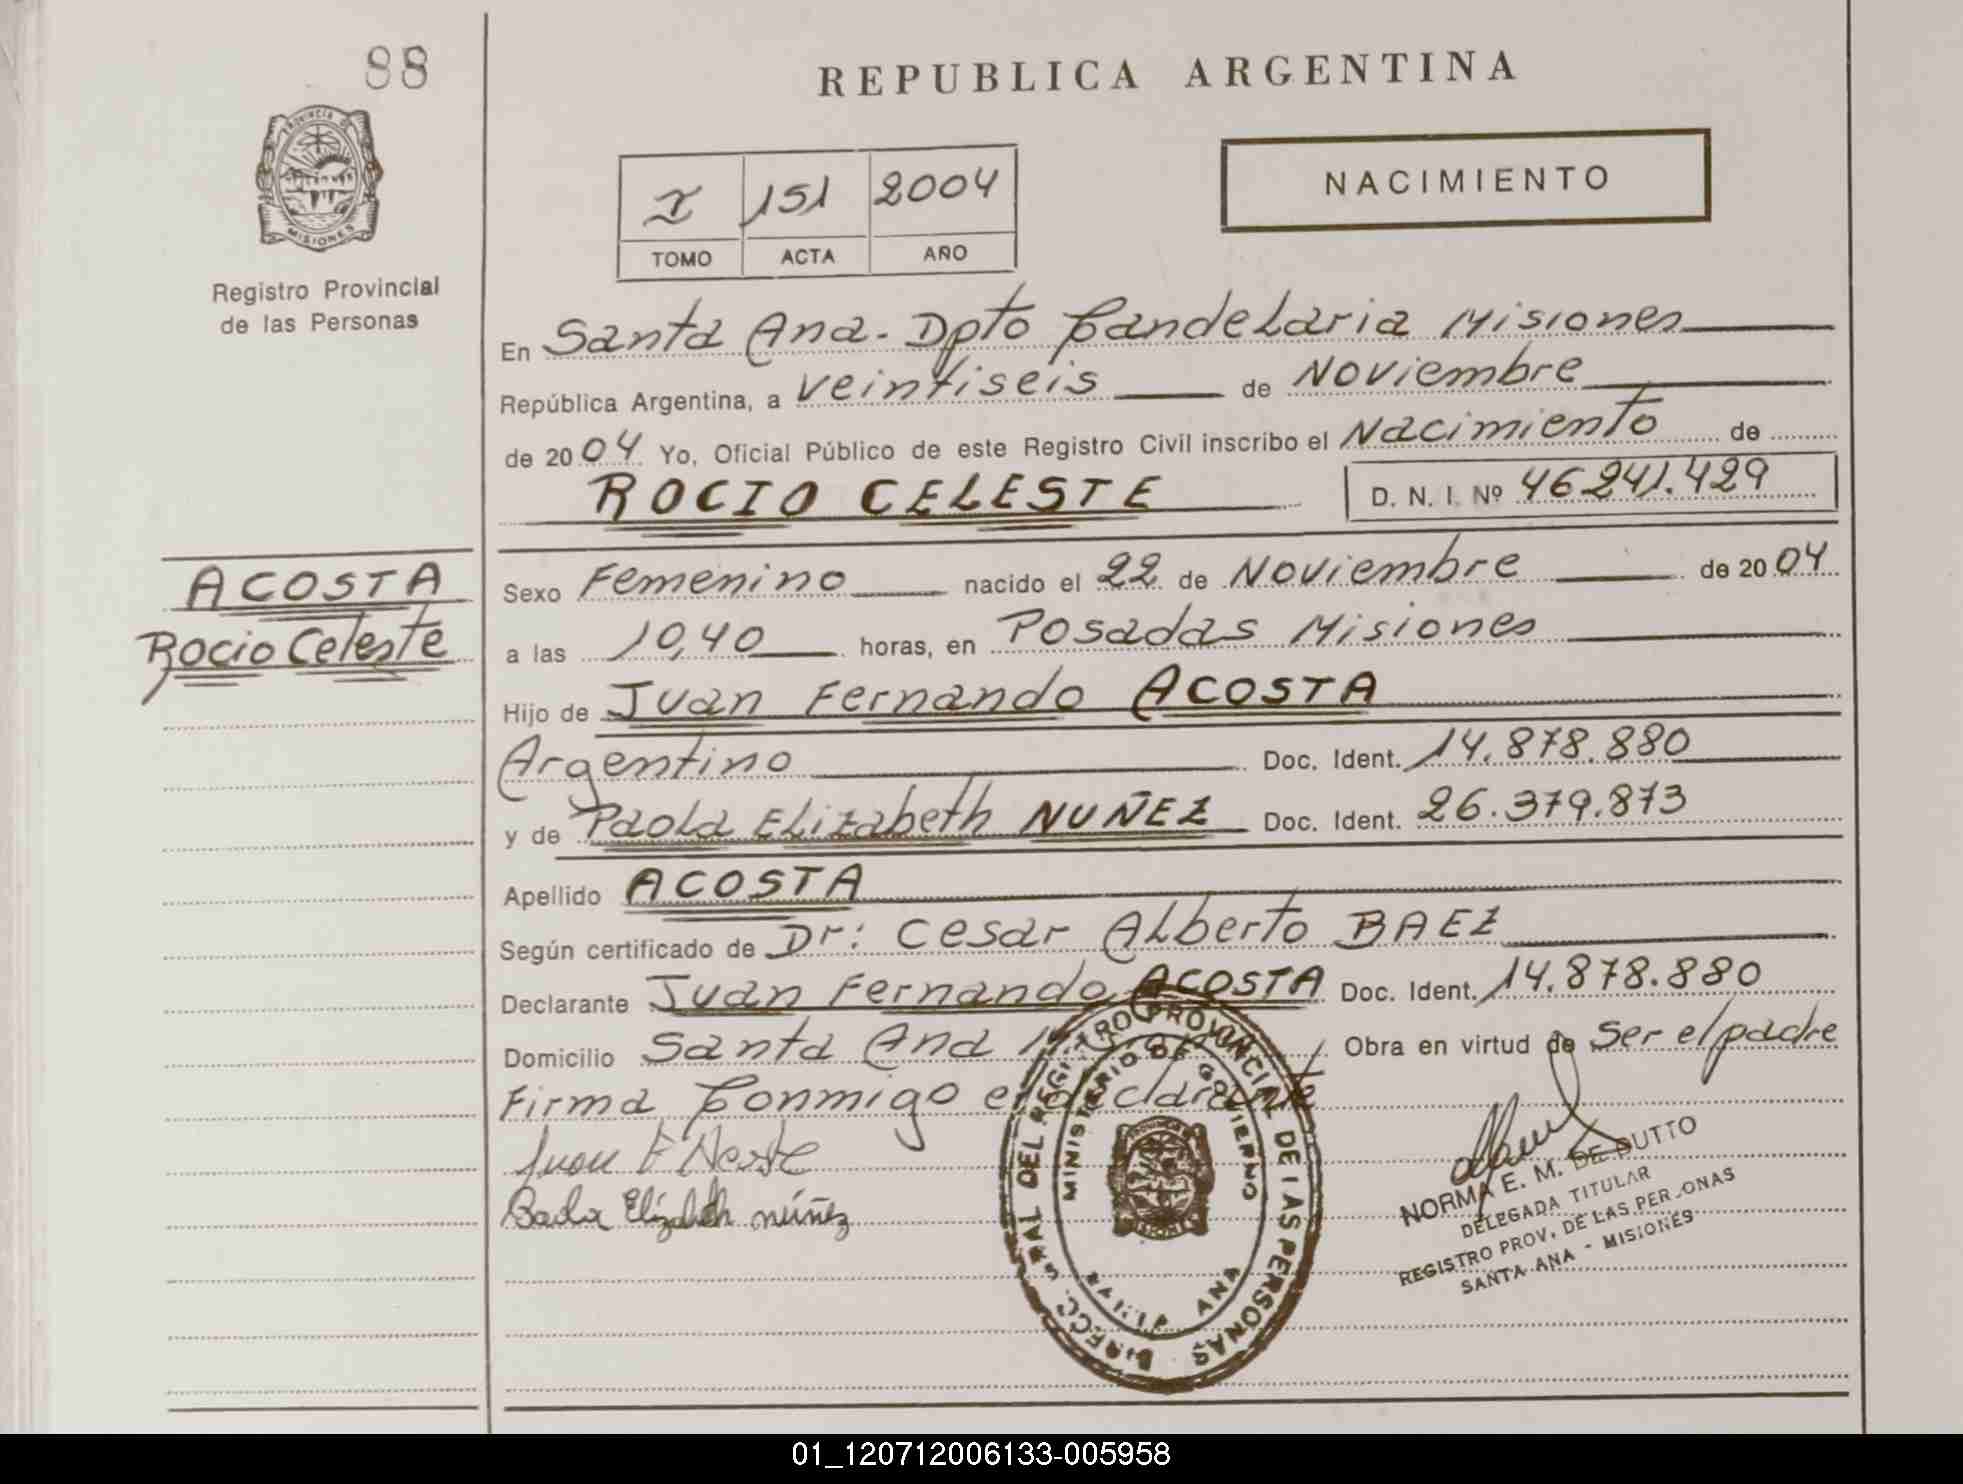 88
REPUBLICA ARGENTINA
PROVINCIA DE
MISIONES
Registro Provincial
de las Personas
I 151 2004
TOMO ACTA AÑO
NACIMIENTO
En Santa Ana - Dpto Candelaria Misiones
República Argentina, a veintiseis de Noviembre
de 2004 Yo, Oficial Público de este Registro Civil inscribo el Nacimiento de
ROCIO CELESTE D. N. I. Nº 46241.429
ACOSTA
Rocio Celeste
Sexo Femenino nacido el 22 de Noviembre de 2004
a las 10,40 horas, en Posadas Misiones
Hijo de Juan Fernando ACOSTA
Argentino Doc. Ident. 14.878.880
y de Paola Elizabeth NUÑEZ Doc. Ident. 26.379.873
Apellido ACOSTA
Según certificado de Dr: Cesar Alberto BAEZ
Declarante Juan Fernando ACOSTA Doc. Ident. 14.878.880
Domicilio Santa Ana Obra en virtud de Ser el padre
Firma Conmigo el declarante
Juan F
Elizabeth núñez
DEL REGISTRO PROVINCIAL DE LAS PERSONAS
MINISTERIO DE GOBIERNO
ANA
NORMA E. M. DE DUTTO
DELEGADA TITULAR
REGISTRO PROV. DE LAS PERSONAS
SANTA ANA - MISIONES
01_120712006133-005958